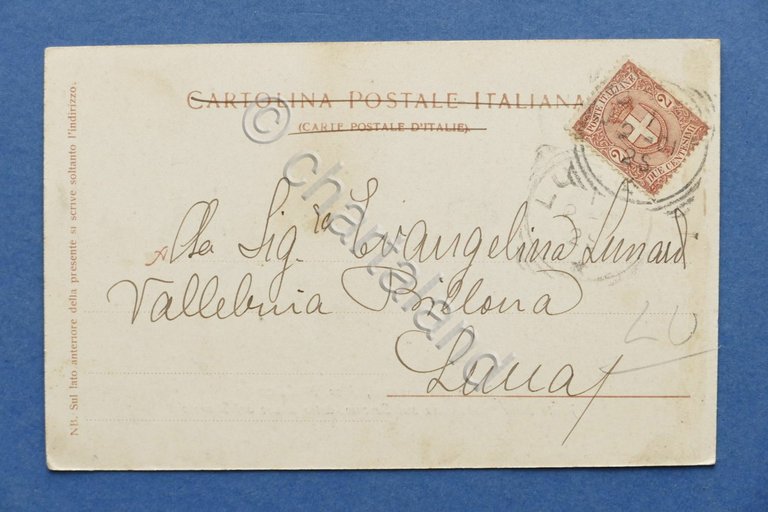 CARTOLINA POSTALE ITALIANA
(CARTE POSTALE D'ITALIE)
POSTE ITALIANE
2 2
DUE CENTESIMI
Alla Sig.ra Evangelina Lunardi
Vallebuia
Lucca
LU
NB. Sul lato anteriore della presente si scrive soltanto l'indirizzo.
© chartaland